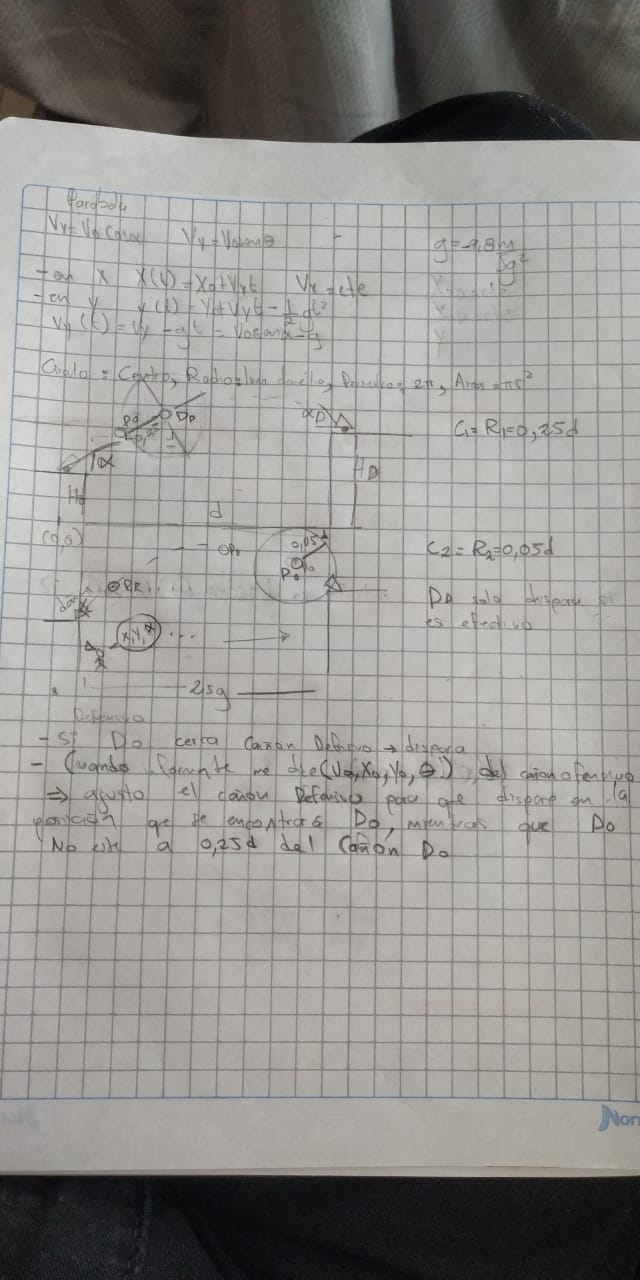 Parabola
Vx = Vo Cosα Vy = Vosenθ
g = -9,8 m/sg²
- en X X(t) = Xo + Vxt Vx = cte
- en y y(t) = Yo + Vyt - 1/2 gt²
Vy(t) = Vy - gt = Vosenα - g
Circulo = Centro, 2π, Area = πr²
Do
αD
C1 = R1 = 0,25d
α
HD
d
(0,0)
0,05d
C2 = R2 = 0,05d
Do solo dispara si
es efectivo
X, Y, α
2sg
Defensivo
- Si Do cerca Cañon Defensivo → dispara
- Cuando me dice (Vo, Xo, Yo, θ) del cañon ofensivo
⇒ ajusto el cañon Defensivo para que dispare en la
posición que se encontrará Do, mientras que Do
No este a 0,25d del Cañón Do
Nor